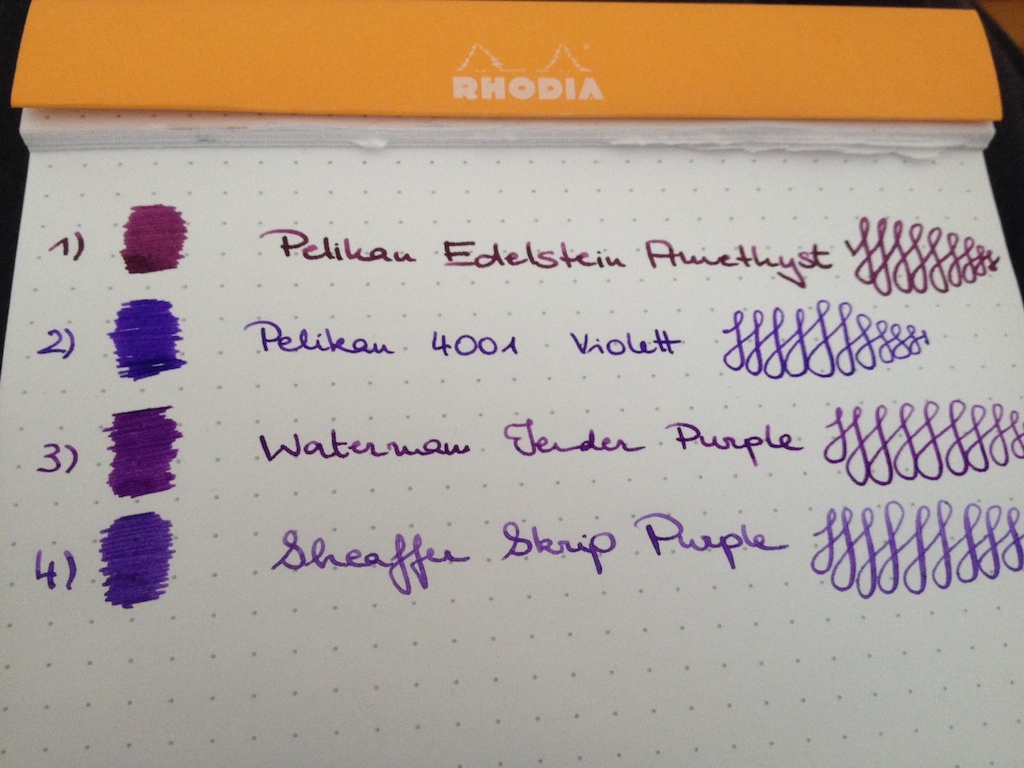 RHODIA
1) Pelikan Edelstein Amethyst
2) Pelikan 4001 Violett
3) Waterman Tender Purple
4) Sheaffer Skrip Purple